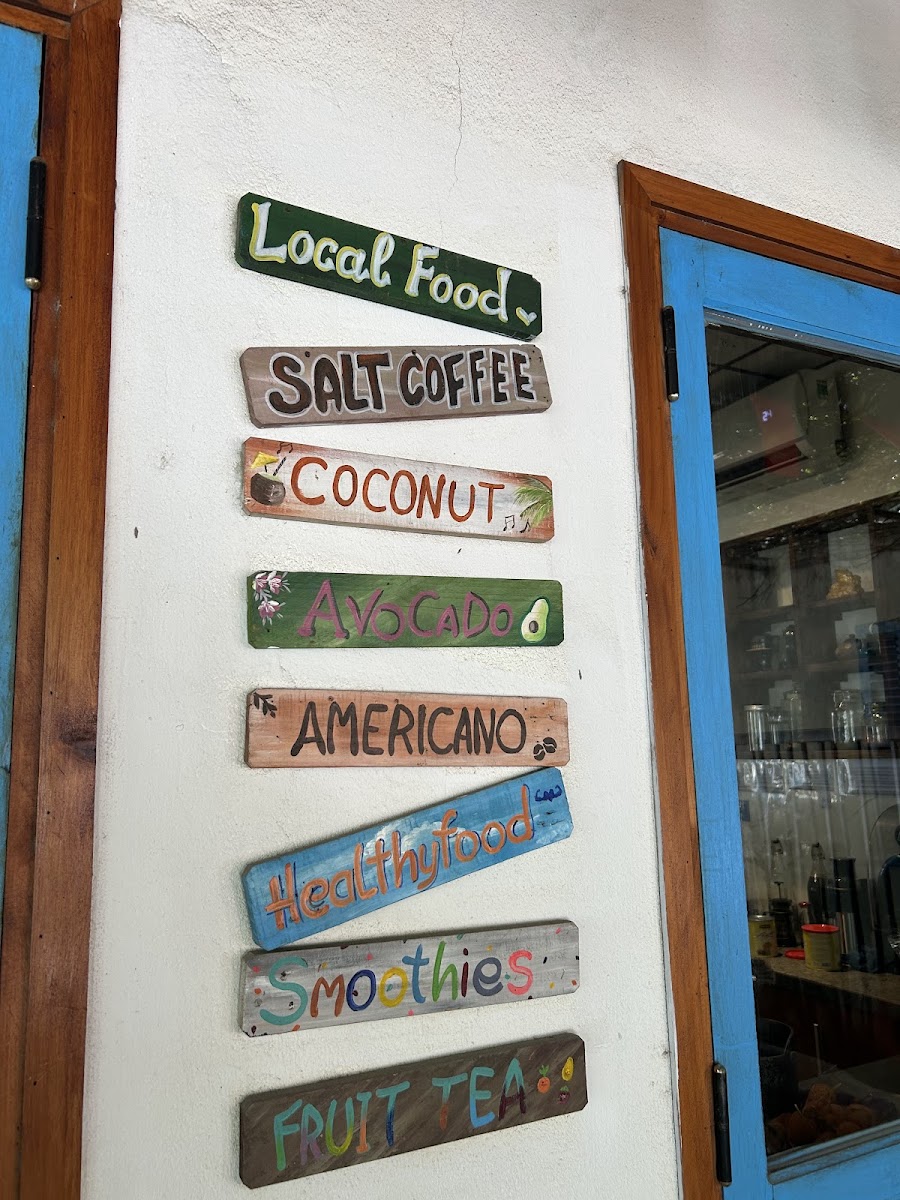 Local Food
SALT COFFEE
COCONUT
AVOCADO
AMERICANO
Healthyfood
Smoothies
FRUIT TEA
24